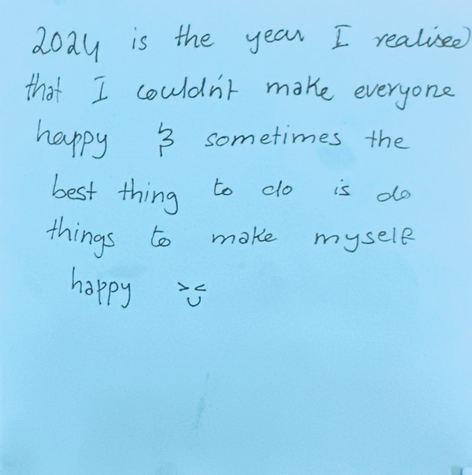 2024 is the year I realised
that I couldn't make everyone
happy & sometimes the
best thing to do is do
things to make myself
happy ><